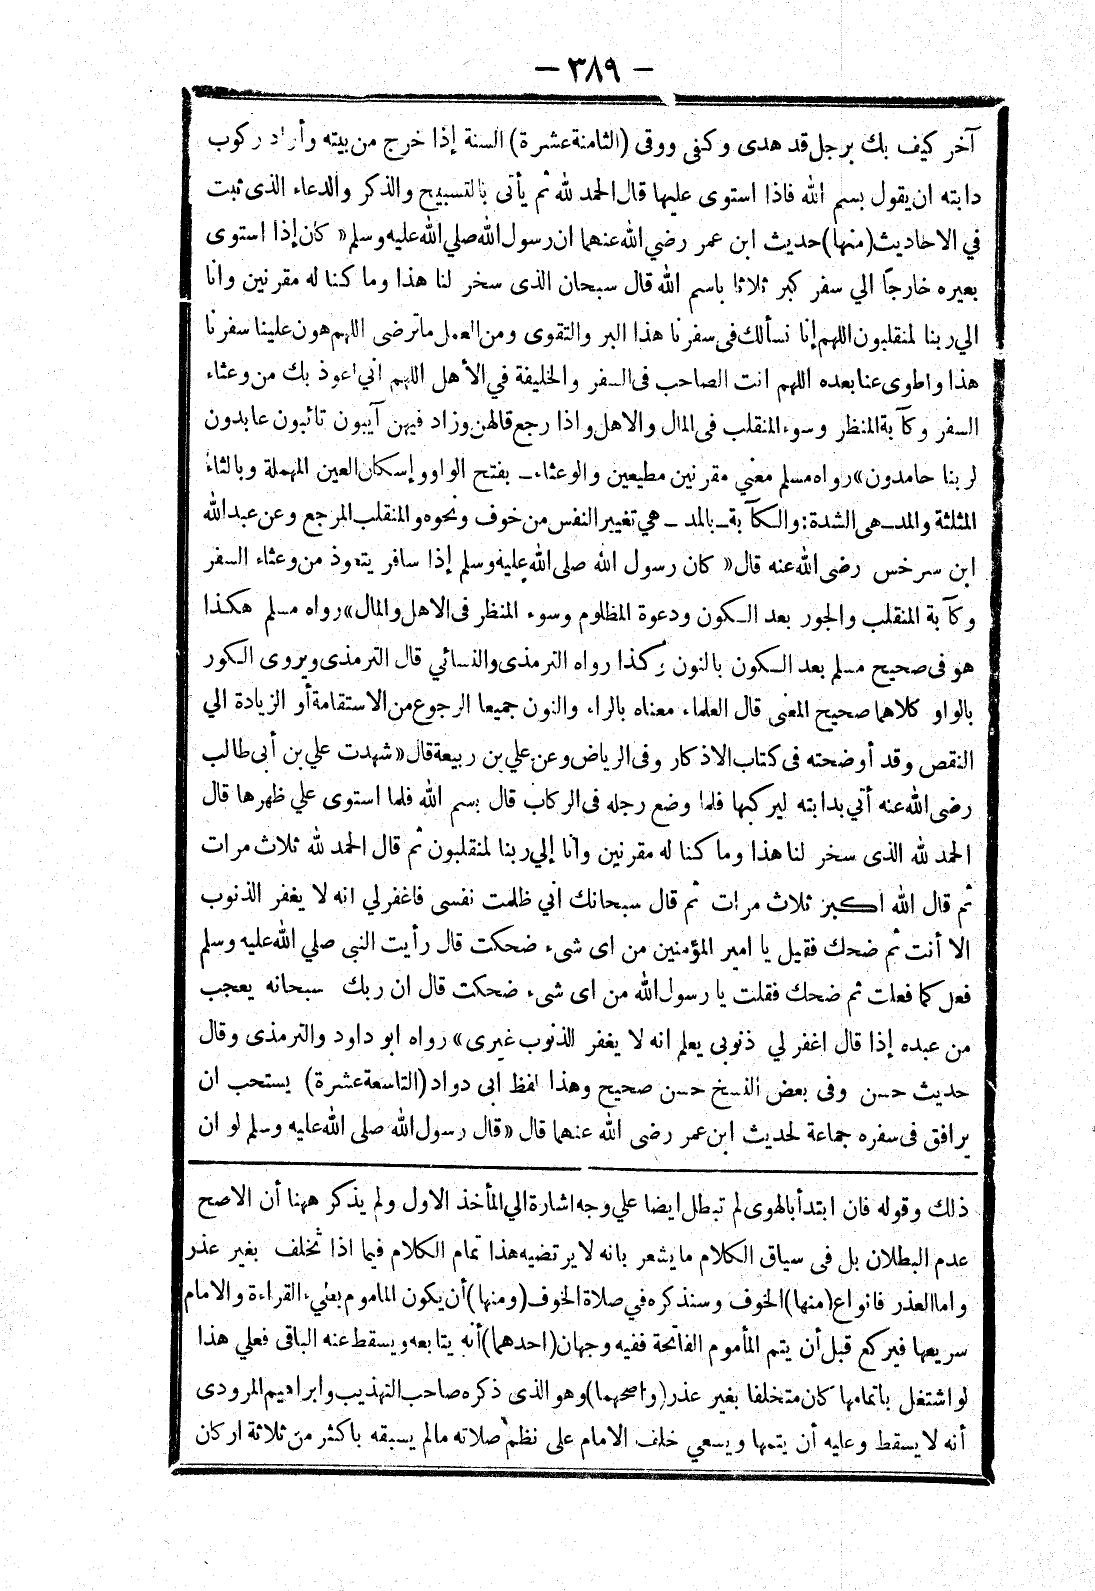 — ٣٨٩ —
آخر كيف بك برجل قد هدى وكفى ووقى (الثامنة عشرة) السنة إذا خرج من بيته وأراد ركوب
دابته ان يقول بسم الله فاذا استوى عليها قال الحمد لله ثم يأتى بالتسبيح والذكر والدعاء الذى ثبت
في الاحاديث (منها) حديث ابن عمر رضي الله عنهما ان رسول الله صلي الله عليه وسلم « كان إذا استوى
بعيره خارجًا الي سفر كبر ثلاثا باسم الله قال سبحان الذى سخر لنا هذا وما كنا له مقرنين وانا
الي ربنا لمنقلبون اللهم إنا نسألك فى سفرنا هذا البر والتقوى ومن العمل ماترضى اللهم هون علينا سفرنا
هذا واطوى عنا بعده اللهم انت الصاحب فى السفر والخليفة في الأهل اللهم اني اعوذ بك من وعثاء
السفر وكآبة المنظر وسوء المنقلب فى المال والاهل واذا رجع قالهن وزاد فيهن آيبون تائبون عابدون
لربنا حامدون» رواه مسلم معني مقرنين مطيعين والوعثاء ـ بفتح الواو وإسكان العين المهملة وبالثاء
المثلثة والمد ـ هى الشدة: والكآبة ـ بالمد ـ هي تغيير النفس من خوف ونحوه والمنقلب المرجع وعن عبد الله
ابن سرخس رضى الله عنه قال « كان رسول الله صلى الله عليه وسلم إذا سافر يتعوذ من وعثاء السفر
وكآبة المنقلب والجور بعد الكون ودعوة المظلوم وسوء المنظر فى الاهل والمال» رواه مسلم هكذا
هو فى صحيح مسلم بعد الكون بالنون وكذا رواه الترمذى والنسائي قال الترمذى ويروى الكور
بالواو كلاهما صحيح المعنى قال العلماء معناه بالراء والنون جميعا الرجوع من الاستقامة أو الزيادة الي
النقص وقد أوضحته فى كتاب الاذكار وفى الرياض وعن علي بن ربيعة قال « شهدت علي بن أبى طالب
رضى الله عنه أتي بدابته ليركبها فلما وضع رجله فى الركاب قال بسم الله فلما استوى علي ظهرها قال
الحمد لله الذى سخر لنا هذا وما كنا له مقرنين وانا إلي ربنا لمنقلبون ثم قال الحمد لله ثلاث مرات
ثم قال الله اكبر ثلاث مرات ثم قال سبحانك اني ظلمت نفسى فاغفرلي انه لا يغفر الذنوب
الا أنت ثم ضحك فقيل يا امير المؤمنين من اى شىء ضحكت قال رأيت النبى صلي الله عليه وسلم
فعل كما فعلت ثم ضحك فقلت يا رسول الله من اى شىء ضحكت قال ان ربك سبحانه يعجب
من عبده إذا قال اغفر لي ذنوبى يعلم انه لا يغفر الذنوب غيرى» رواه ابو داود والترمذى وقال
حديث حسن وفى بعض النسخ حسن صحيح وهذا لفظ ابى دواد (التاسعة عشرة) يستحب ان
يرافق فى سفره جماعة لحديث ابن عمر رضى الله عنهما قال « قال رسول الله صلى الله عليه وسلم لو ان
ذلك وقوله فان ابتدأ بالهوى لم تبطل ايضا علي وجه اشارة الي المأخذ الاول ولم يذكر ههنا أن الاصح
عدم البطلان بل فى سياق الكلام ما يشعر بانه لا يرتضيه هذا تمام الكلام فيما اذا تخلف بغير عذر
واما العذر فانواع (منها) الخوف وسنذكره في صلاة الخوف (ومنها) أن يكون الماموم بطيء القراءة والامام
سريعها فيركع قبل أن يتم المأموم الفاتحة ففيه وجهان (احدهما) أنه يتابعه ويسقط عنه الباقى فعلي هذا
لو اشتغل باتمامها كان متخلفا بغير عذر (واصحهما) وهو الذى ذكره صاحب التهذيب وابراهيم المرودى
أنه لا يسقط وعليه أن يتمها ويسعي خلف الامام على نظم صلاته مالم يسبقه باكثر من ثلاثة اركان